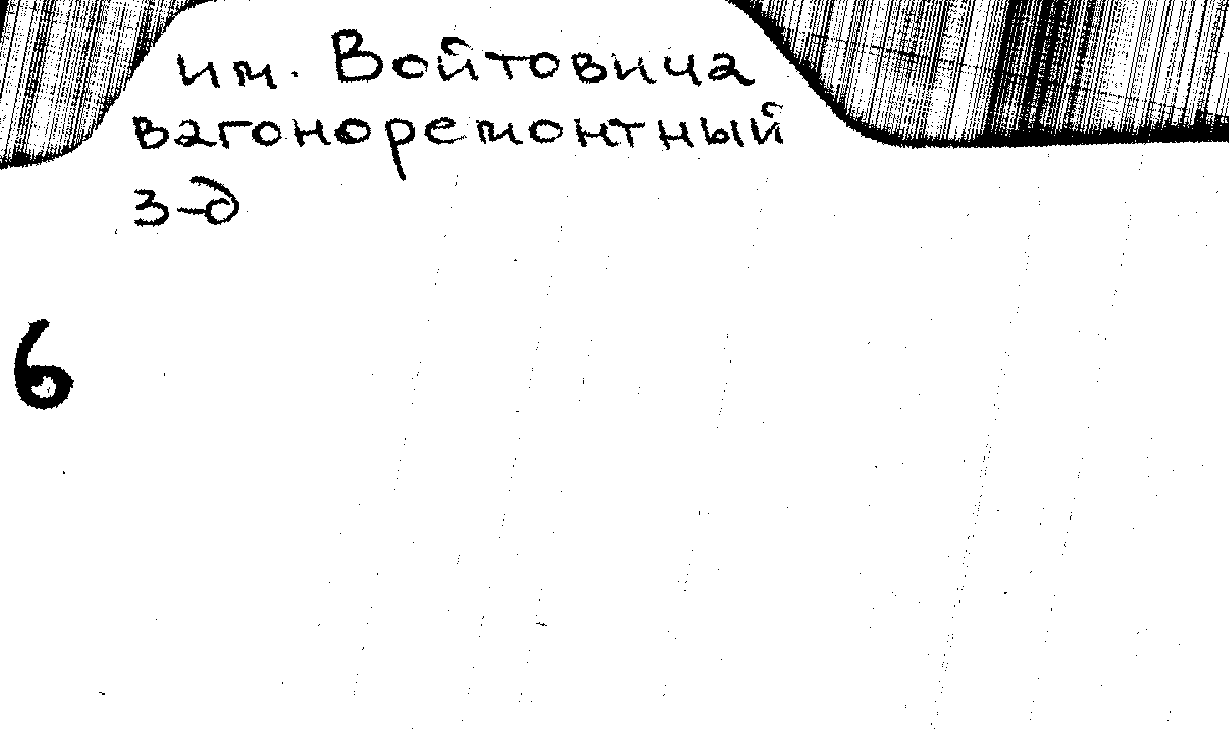 им. Войтовича
вагоноремонтный
з-д
6